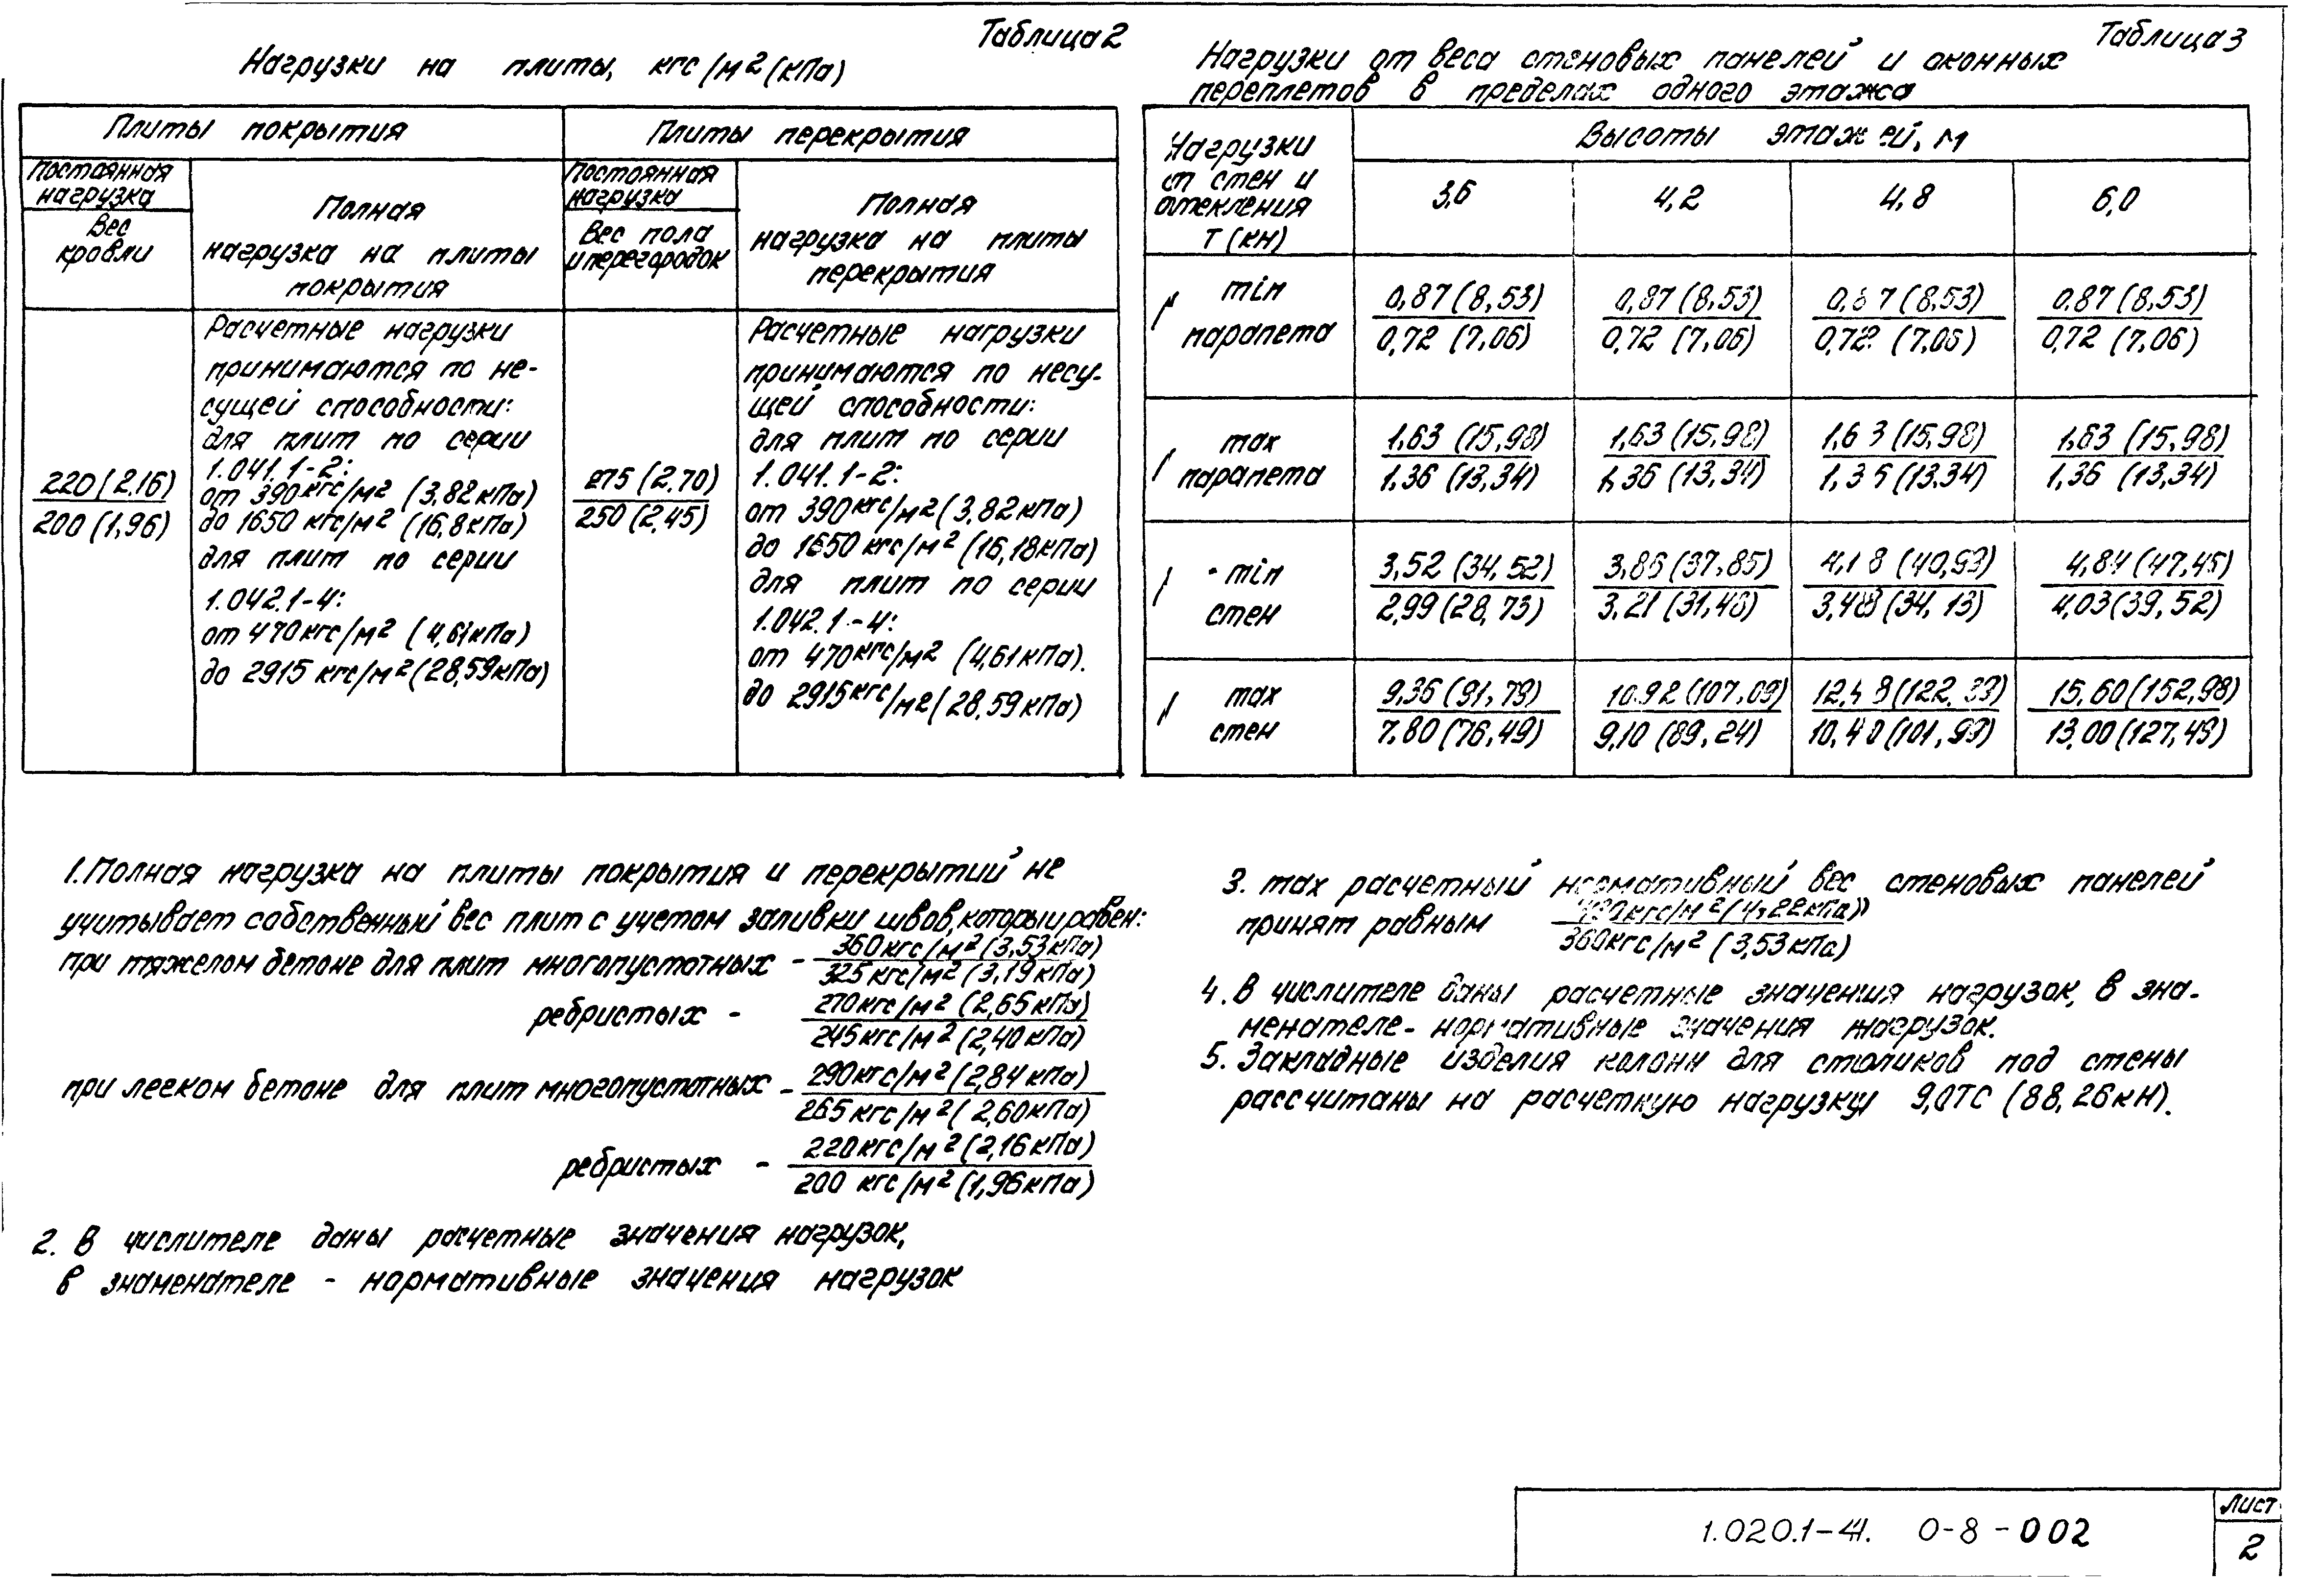 Таблица 2
Нагрузки на плиты, кгс/м² (кПа)
Плиты покрытия
Плиты перекрытия
Постоянная нагрузка
Вес кровли
Полная
нагрузка на плиты
покрытия
Постоянная нагрузка
Вес пола
и перегородок
Полная
нагрузка на плиты
перекрытия
220 (2,16)
200 (1,96)
Расчетные нагрузки
принимаются по не-
сущей способности:
для плит по серии
1.041.1-2:
от 390 кгс/м² (3,82 кПа)
до 1650 кгс/м² (16,8 кПа)
для плит по серии
1.042.1-4:
от 470 кгс/м² (4,61 кПа)
до 2915 кгс/м² (28,59 кПа)
275 (2,70)
250 (2,45)
Расчетные нагрузки
принимаются по несу-
щей способности:
для плит по серии
1.041.1-2:
от 390 кгс/м² (3,82 кПа)
до 1650 кгс/м² (16,18 кПа)
для плит по серии
1.042.1-4:
от 470 кгс/м² (4,61 кПа).
до 2915 кгс/м² (28,59 кПа)
Таблица 3
Нагрузки от веса стеновых панелей и оконных
переплетов в пределах одного этажа
Нагрузки
от стен и
остекления
Т (кН)
Высоты этажей, м
3,6 4,2 4,8 6,0
min
парапета
0,87 (8,53) 0,87 (8,53) 0,87 (8,53) 0,87 (8,53)
0,72 (7,06) 0,72 (7,06) 0,72 (7,06) 0,72 (7,06)
max
парапета
1,63 (15,98) 1,63 (15,98) 1,63 (15,98) 1,63 (15,98)
1,36 (13,34) 1,36 (13,34) 1,36 (13,34) 1,36 (13,34)
min
стен
3,52 (34,52) 3,86 (37,85) 4,18 (40,99) 4,84 (47,45)
2,99 (28,73) 3,21 (31,48) 3,48 (34,13) 4,03 (39,52)
max
стен
9,36 (91,79) 10,92 (107,09) 12,48 (122,39) 15,60 (152,98)
7,80 (76,49) 9,10 (89,24) 10,40 (101,99) 13,00 (127,49)
1. Полная нагрузка на плиты покрытия и перекрытий не
учитывает собственный вес плит с учетом заливки швов, который равен:
при тяжелом бетоне для плит многопустотных - 360 кгс/м² (3,53 кПа)
325 кгс/м² (3,19 кПа)
ребристых - 270 кгс/м² (2,65 кПа)
245 кгс/м² (2,40 кПа)
при легком бетоне для плит многопустотных - 290 кгс/м² (2,84 кПа)
265 кгс/м² (2,60 кПа)
ребристых - 220 кгс/м² (2,16 кПа)
200 кгс/м² (1,96 кПа)
2. В числителе даны расчетные значения нагрузок,
в знаменателе - нормативные значения нагрузок
3. max расчетный нормативный вес стеновых панелей
принят равным (4,22 кПа)
360 кгс/м² (3,53 кПа)
4. В числителе даны расчетные значения нагрузок, в зна-
менателе - нормативные значения нагрузок.
5. Закладные изделия колонн для столиков под стены
рассчитаны на расчетную нагрузку 9,0ТС (88,26 кН).
1.020.1-4. 0-8-002
Лист
2